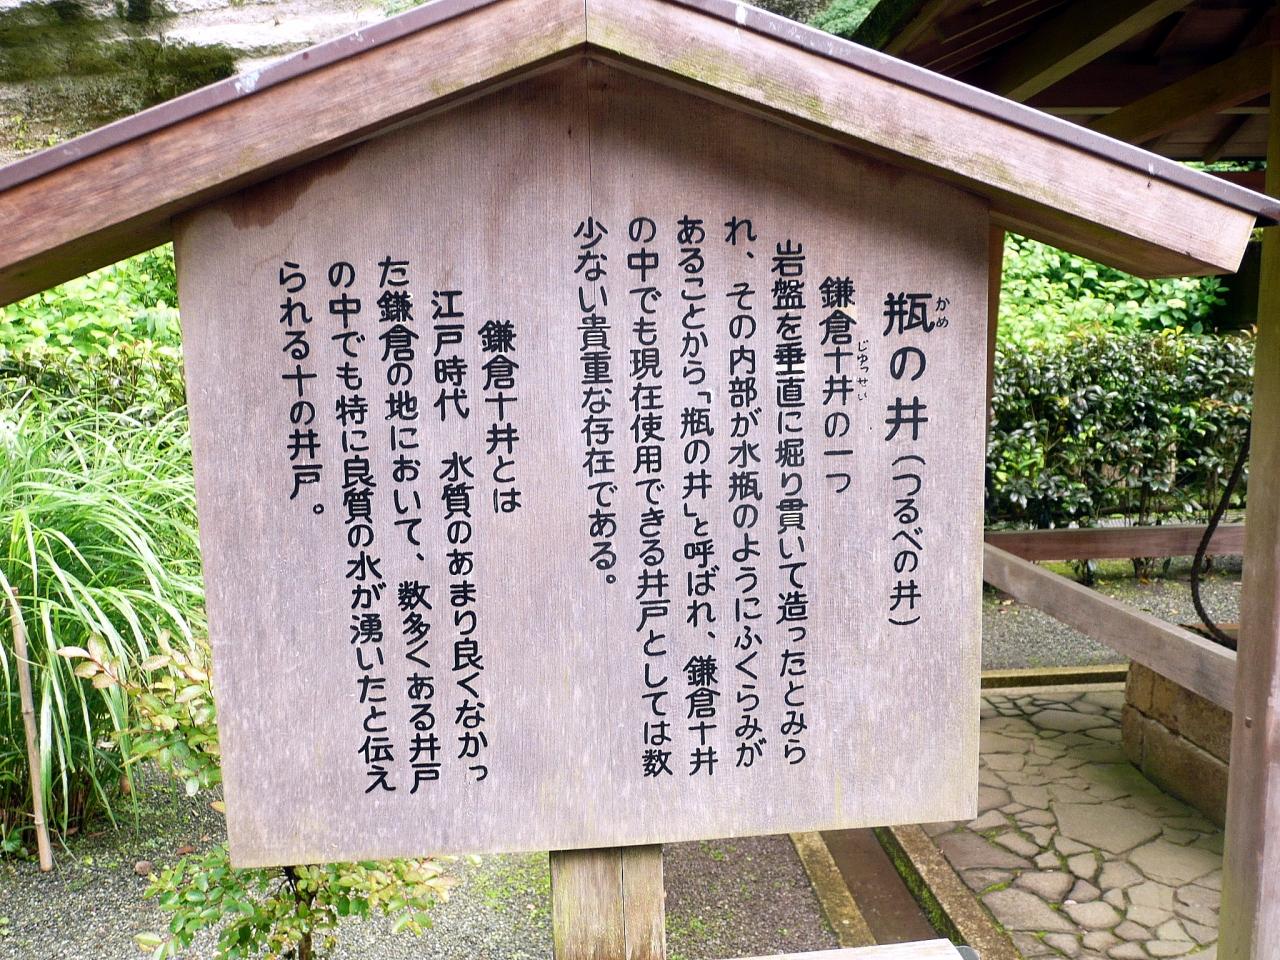 瓶の井（つるべの井）
かめ
鎌倉十井の一つ
じゅっせい
岩盤を垂直に堀り貫いて造ったとみら
れ、その内部が水瓶のようにふくらみが
あることから「瓶の井」と呼ばれ、鎌倉十井
の中でも現在使用できる井戸としては数
少ない貴重な存在である。
鎌倉十井とは
江戸時代　水質のあまり良くなかっ
た鎌倉の地において、数多くある井戸
の中でも特に良質の水が湧いたと伝え
られる十の井戸。